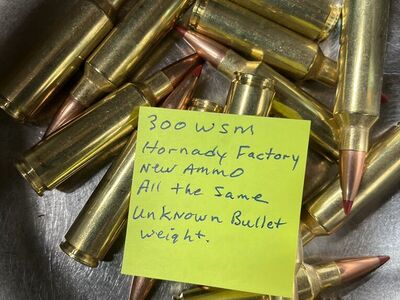 300 WSM
Hornady Factory
New Ammo
All the Same
Unknown Bullet
weight.